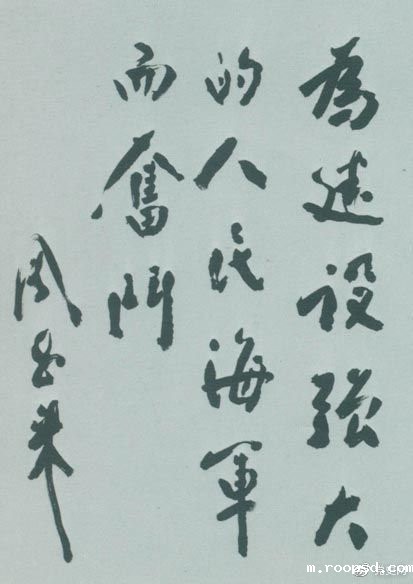 為建設強大
的人民海軍
而奮鬥
周恩来
m.roopsd.com